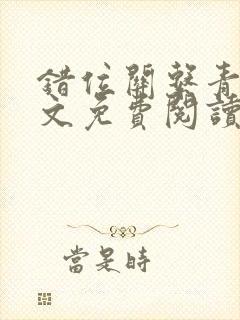 錯位關繫青
文免費閱讀
當是時